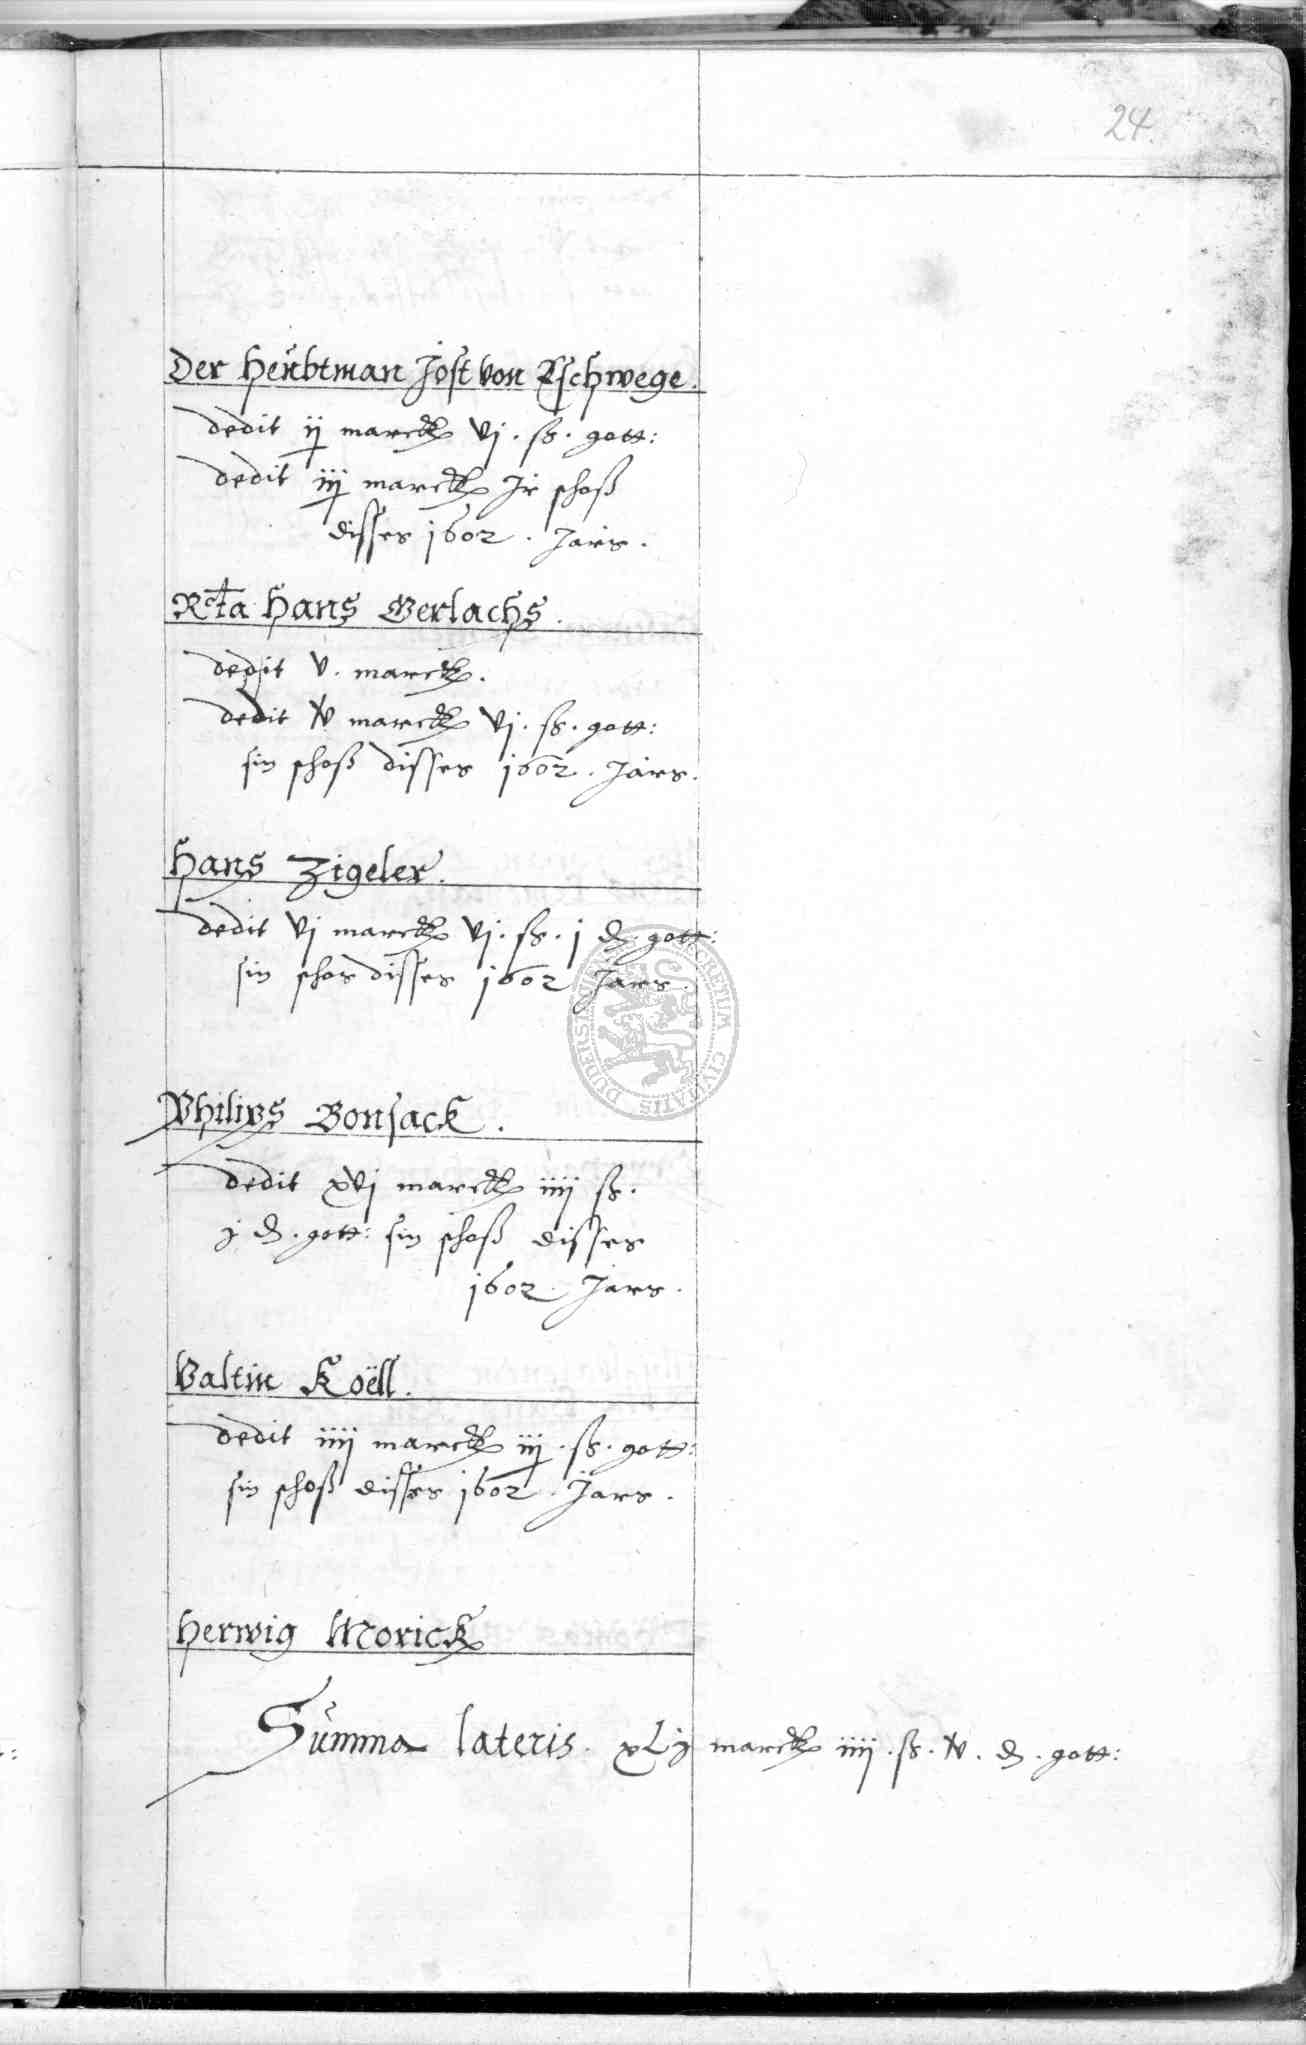 24.
Der Heubtman Jost von Eschwege.
dedit ij marck vj. ß. gott:
dedit iij marck Jr schoß
disses 1602. Jars.
Rcta Hans Gerlachs.
dedit v. marck.
dedit iv marck vj. ß. gott:
sin schoß disses 1602. Jars.
Hans Zigeler.
dedit vj marck vj. ß. j d. gott:
sin schos disses 1602 Jars.
SECRETUM CIVITATIS DUDERSTA
Philips Bonsack.
dedit xvj marck iiij ß.
j d. gott: sin schoß disses
1602. Jars.
Valtin Koëll.
dedit iiij marck iij. ß. gott:
sin schoß disses 1602. Jars.
Herwig Morick
Summa lateris. xLj marck iiij. ß. iv. d. gott: